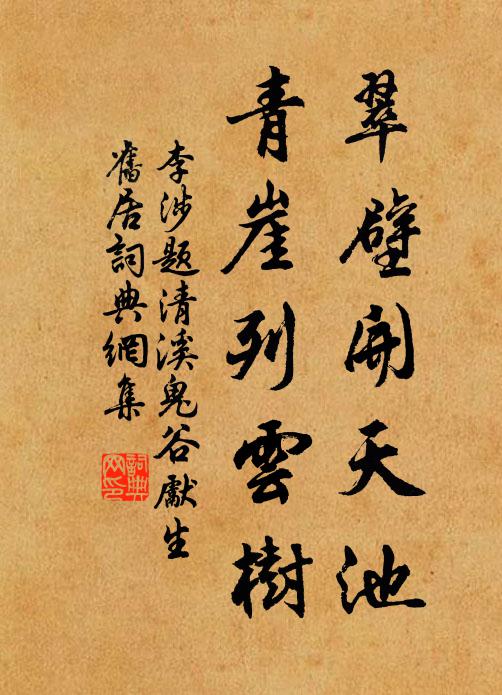 翠壁開天池
青崖列雲樹
李涉題清溪鬼谷獻生
舊居詞典網集
詞典網印